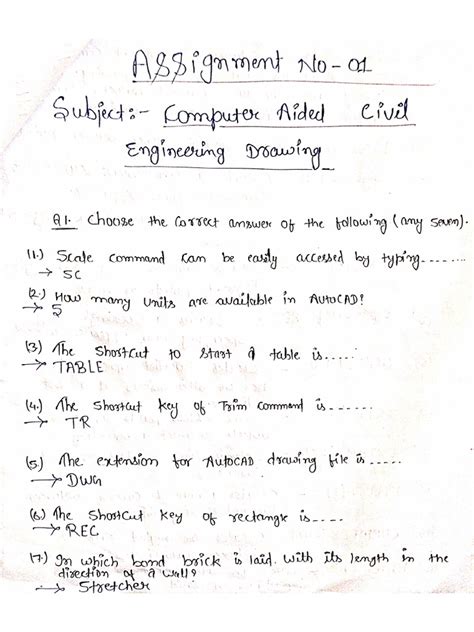 Assignment No-01
Subject:- Computer Aided Civil
Engineering Drawing
Q1. Choose the Correct answer of the following (any seven).
(1.) Scale command can be easily accessed by typing........
→ SC
(2.) How many units are available in AutoCAD?
→ 5
(3) The Shortcut to start a table is.....
→ TABLE
(4.) The Shortcut key of Trim comment is ......
→ TR
(5.) The extension for AutoCAD drawing file is .....
→ DWG
(6) The Shortcut key of rectange is....
→ REC
(7.) In which bond brick is laid. With its length in the
direction of a wall?
→ Stretcher